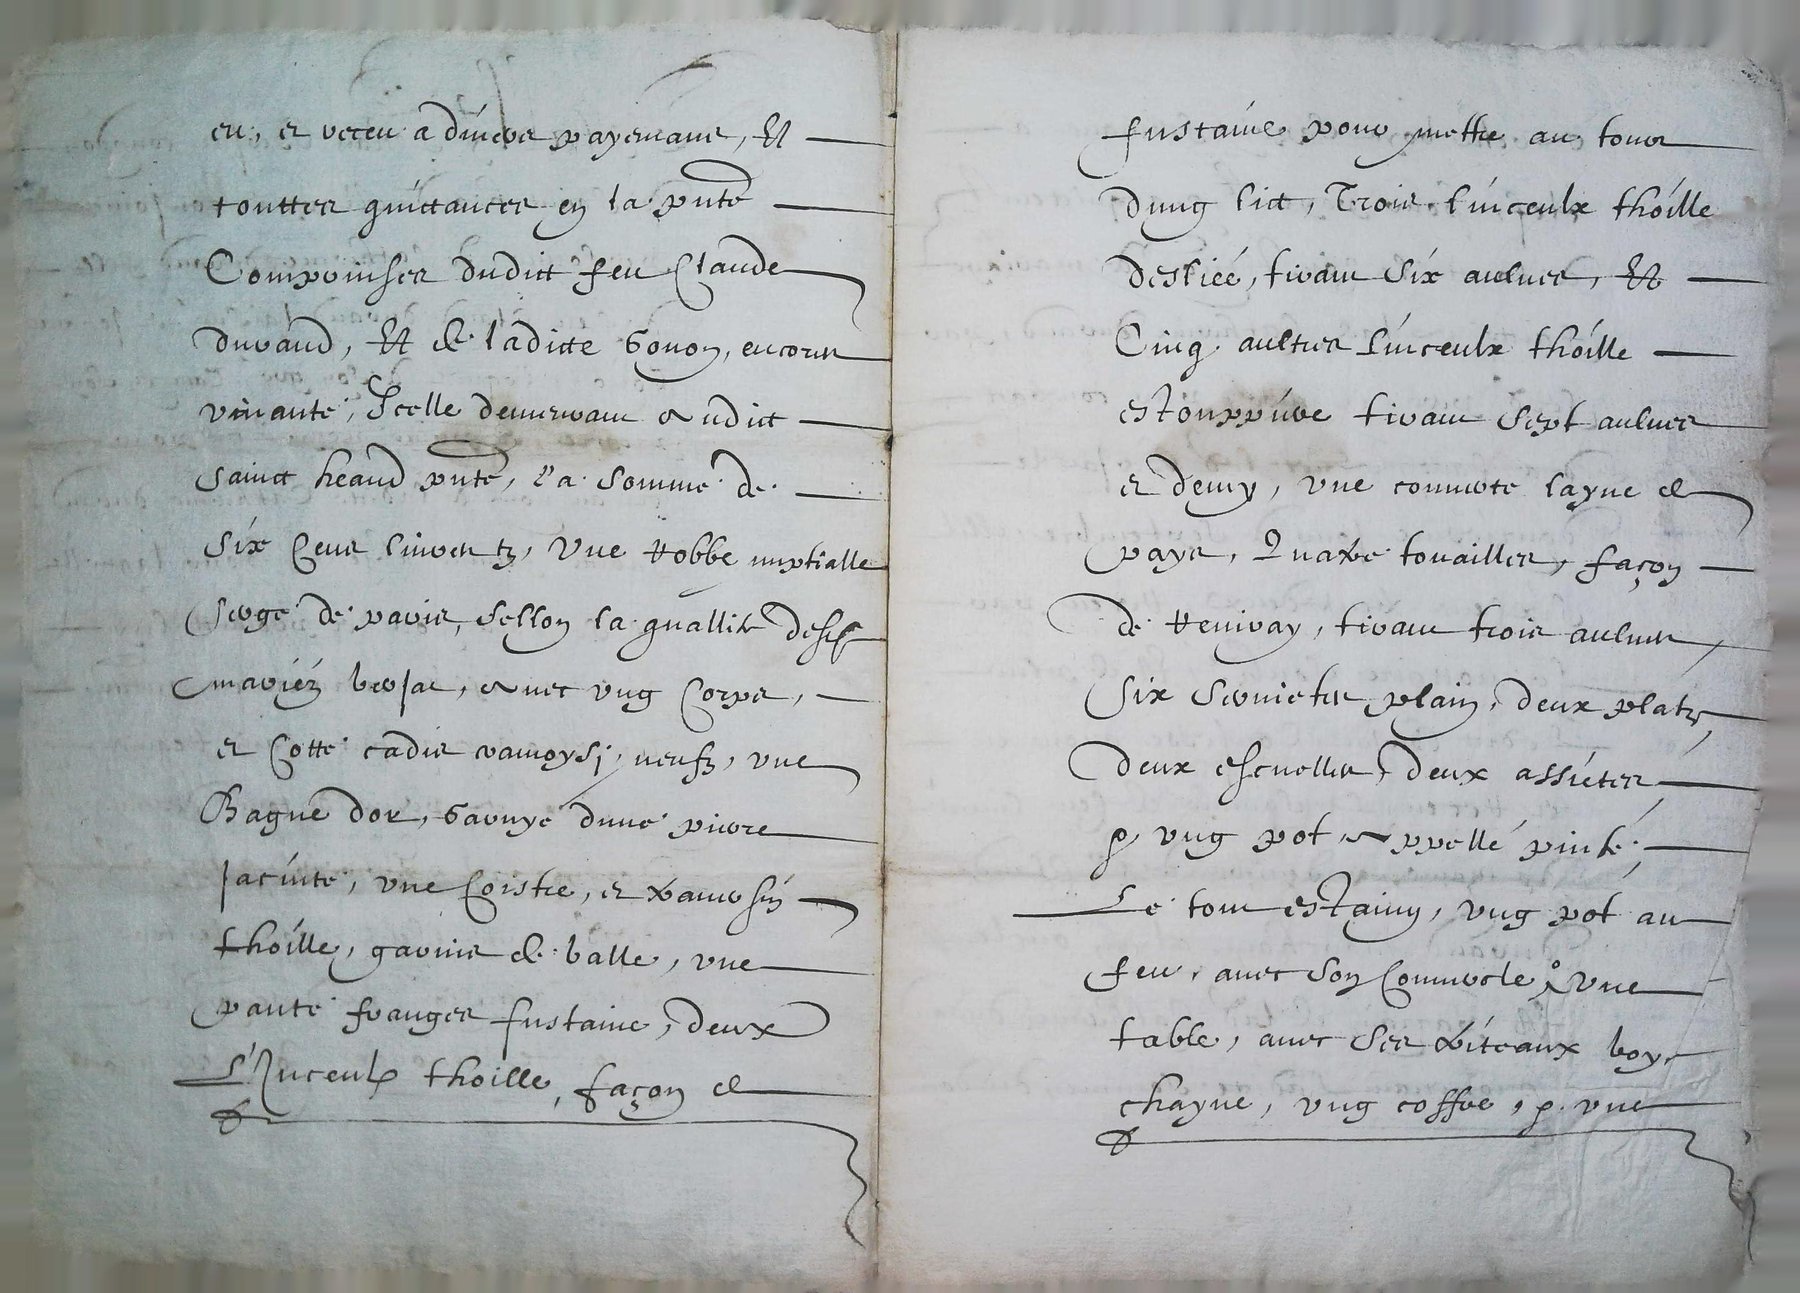 eu, et receu a divers payemans, Et
touttes quittances en la pnte
Comprinses dudict feu Claude
Durand, Et de ladicte Gonon, encores
vivante, Icelle demeurant audict
sainct heand pnte, la somme de
six cens livres tz, Une Robbe nuptialle
serge de paris, sellon la quallite desd
mariéz, avec ung Corps,
et Cotte cadis neufz, une
Bague dor, Garnye dune pierre
Jacinte, une Coistre, et
thoille, garnis de balle, une
pante franges fustaine, deux
Linceulx thoille, façon de
fustaine pour mettre au tour
dung lict, Trois linceulx thoille
desliée, tirant six aulnes, Et
Cinq aultres linceulx thoille
estouppure tirant sept aulnes
et demy, une couverte layne de
pays, Quatre touailles, façon
de Venivay, tirant trois aulnes
Six serviettes plain, deux platz,
deux escuelles, deux assietes,
& ung pot, appellé pinte,
Le tout estaing, ung pot au
feu, avec son Couvercle, une
table, avec ses triteaux boys
chayne, ung coffre, & une